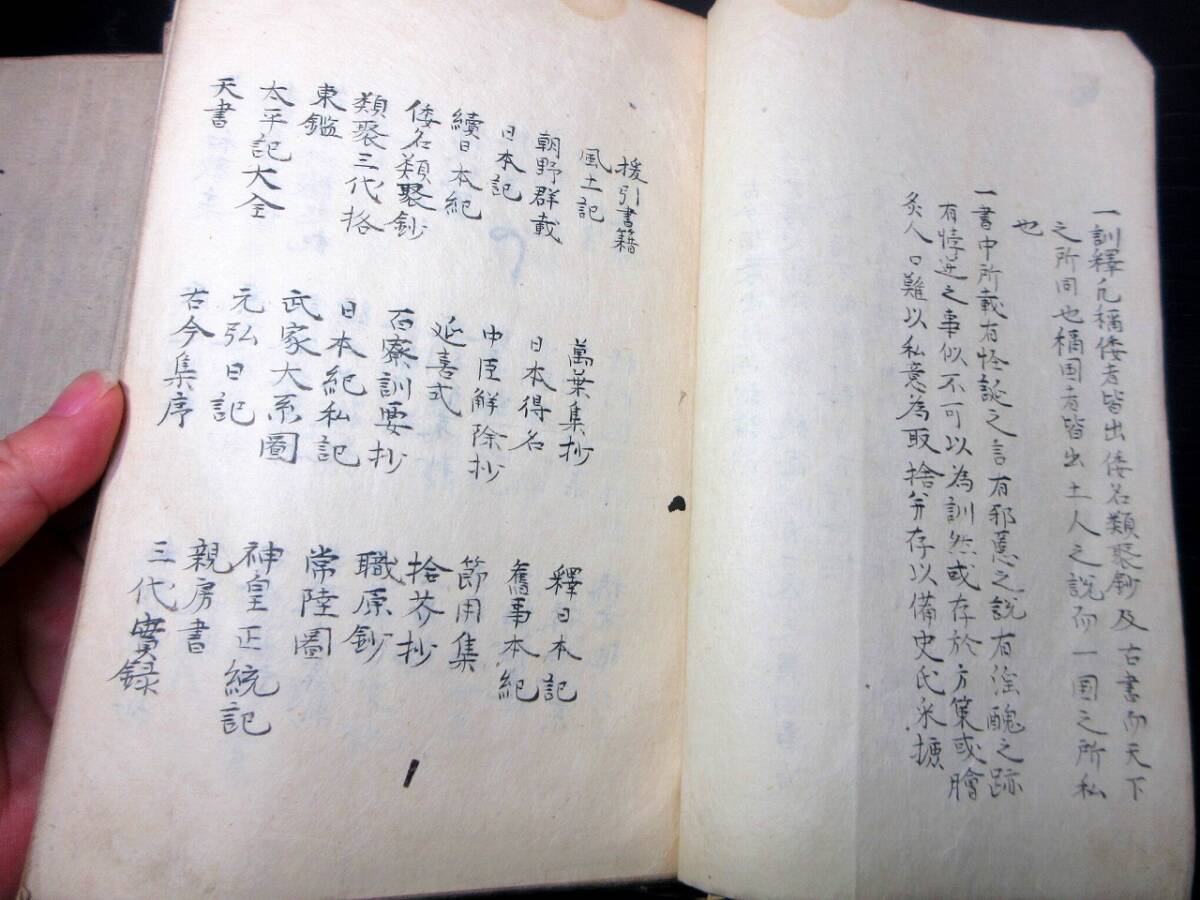 一訓釋凢稱倭者皆出倭名類聚鈔及古書而天下
之所同也稱国者皆出土人之說而一国之所私
也
一書中所載有怪誕之言有邪慝之說有淫醜之跡
有悖逆之事似不可以為訓然或存於方策或膾
炙人口難以私意為取捨并存以備史氏采摭
援引書籍
風土記 萬葉集抄 釋日本記
朝野群載 日本得名 舊事本紀
日本記 中臣解除抄 節用集
續日本紀 延喜式 拾芥抄
倭名類聚鈔 石寮訓要抄 職原鈔
類聚三代格 日本紀私記 常陸圖
東鑑 武家大系圖 神皇正統記
太平記大全 元弘日記 親房書
天書 古今集序 三代實録